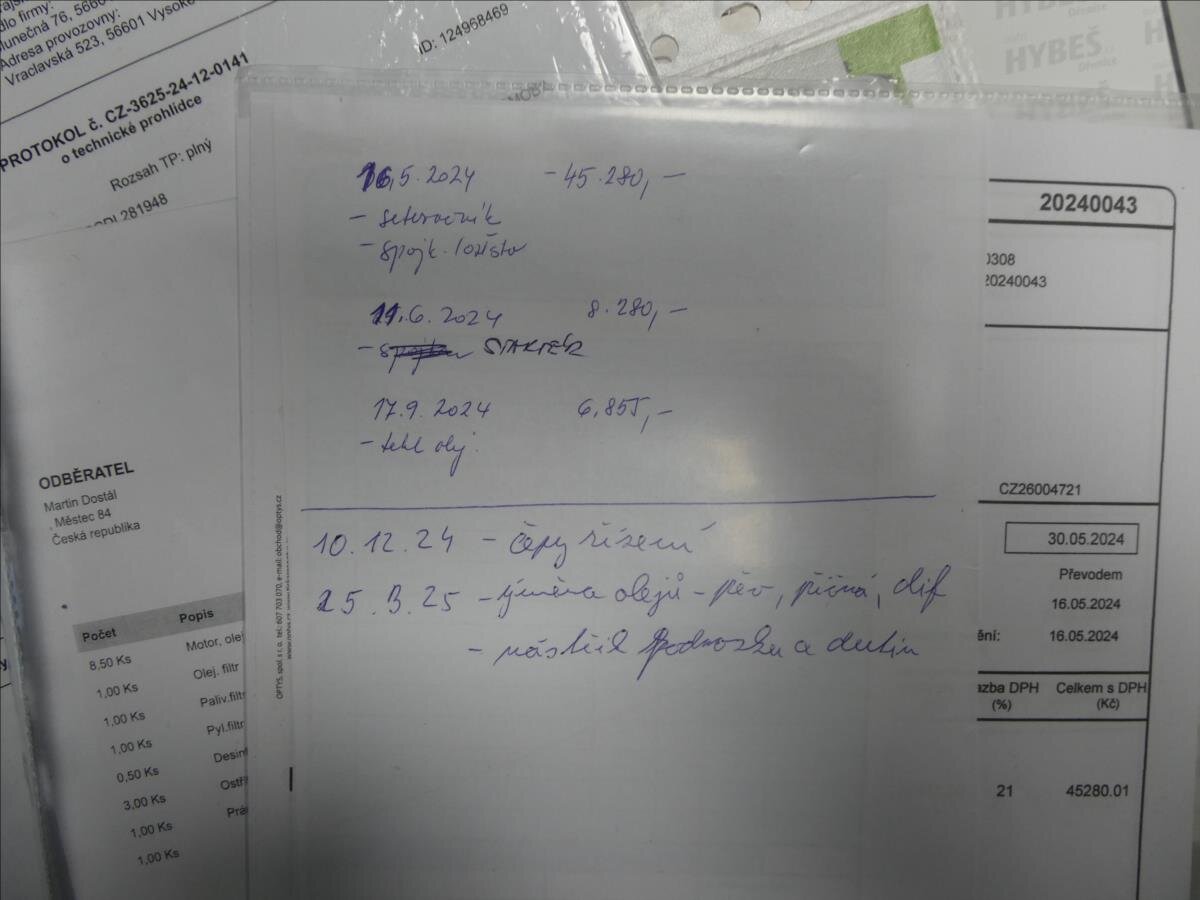 dlo firmy:
lunečná 76, 5660
Adresa provozovny:
Vraclavská 523, 56601 Vysoké
ID: 124968469
HYBEŠ
PROTOKOL č. CZ-3625-24-12-0141
o technické prohlídce
Rozsah TP: plný
281948
16.5.2024 - 45.280,-
- setrvačník
- spojk. ložisko
11.6.2024 8.280,-
- STARTÉR
17.9.2024 6.855,-
- olej.
10.12.24 - čepy řízení
25.3.25 - výměna olejů - přev, příčná, dif
- nástřik podvozku a dutin
20240043
0308
20240043
CZ26004721
30.05.2024
Převodem
16.05.2024
ění: 16.05.2024
azba DPH Celkem s DPH
(%) (Kč)
21 45280.01
ODBĚRATEL
Martin Dostál
, Městec 84
Česká republika
Počet Popis
8,50 Ks Motor, olej
1,00 Ks Olej. filtr
1,00 Ks Paliv.filtr
1,00 Ks Pyl.filtr
0,50 Ks Desinf
3,00 Ks Ostř
1,00 Ks Prá
1,00 Ks
OPTYS, spol. s r. o., tel.: 607 703 070, e-mail: obchod@optys.cz
www.optys.cz